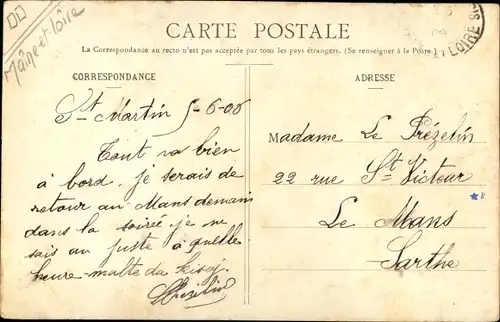 Maine et Loire
CARTE POSTALE
La Correspondance au recto n'est pas acceptée par tous les pays étrangers. (Se renseigner à la Poste.)
CORRESPONDANCE
St Martin 5-6-06
Tout va bien
à bord, je serais de
retour au Mans demain
dans la soirée. je ne
sais au juste à quelle
heure
ADRESSE
Madame Le Prézelin
22 rue St Victeur
Le Mans
Sarthe
LOIRE